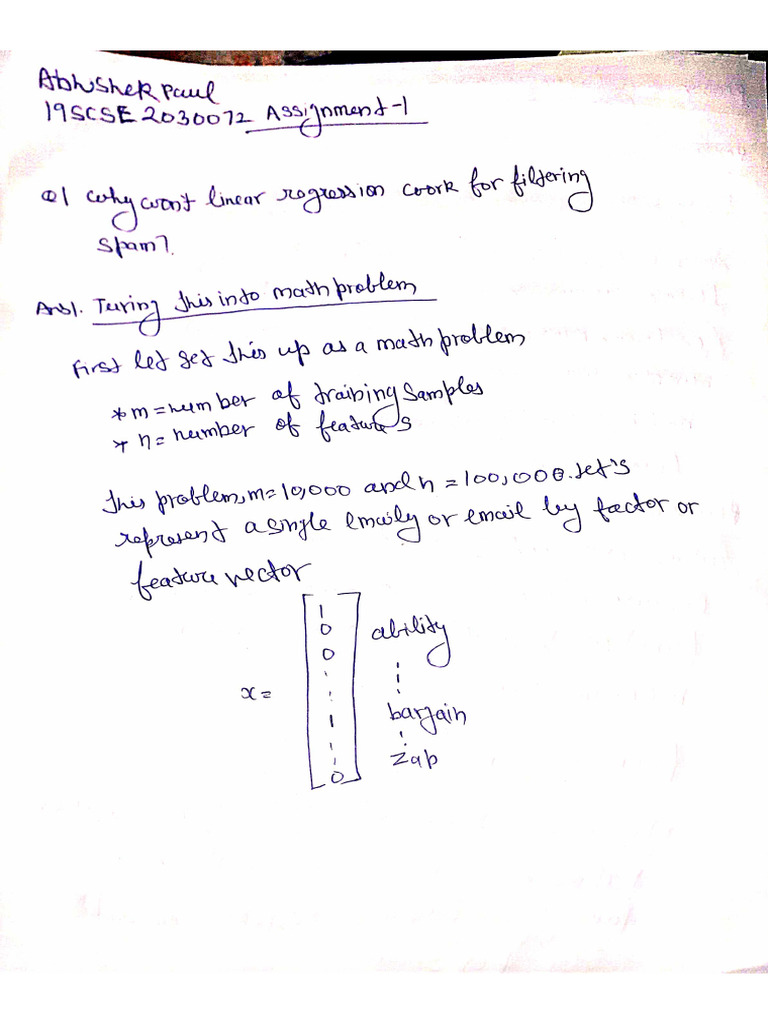 Abhishek Paul
19SCSE2030072 Assignment-1
Q1 Why wont linear regression work for filtering
spam?
Ans1. Turing this into math problem
First let set this up as a math problem
* m = number of training samples
* n = number of features
This problem, m=10,000 and n = 100,000. let's
represent a single emaily or email by factor or
feature vector
x =
1
0 ability
0
1 bargain
0 zap